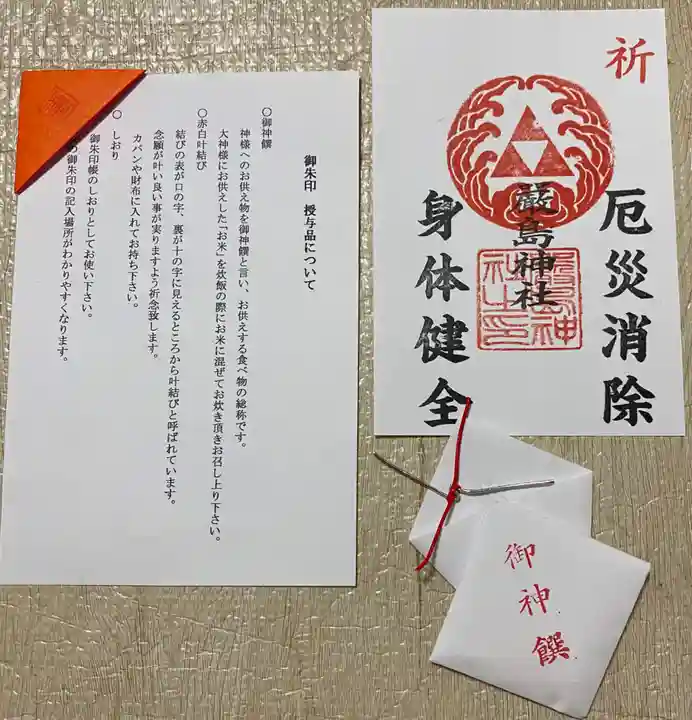 祈
厄災消除
嚴島神社
身体健全
御朱印 授与品について
〇御神饌
神様へのお供え物を御神饌と言い、お供えする食べ物の総称です。
大神様にお供えした「お米」を炊飯の際にお米に混ぜてお炊き頂きお召し上り下さい。
〇赤白叶結び
結びの表が口の字、裏が十の字に見えるところから叶結びと呼ばれています。
念願が叶い良い事が実りますよう祈念致します。
カバンや財布に入れてお持ち下さい。
〇しおり
御朱印帳のしおりとしてお使い下さい。
の御朱印の記入場所がわかりやすくなります。
御神饌